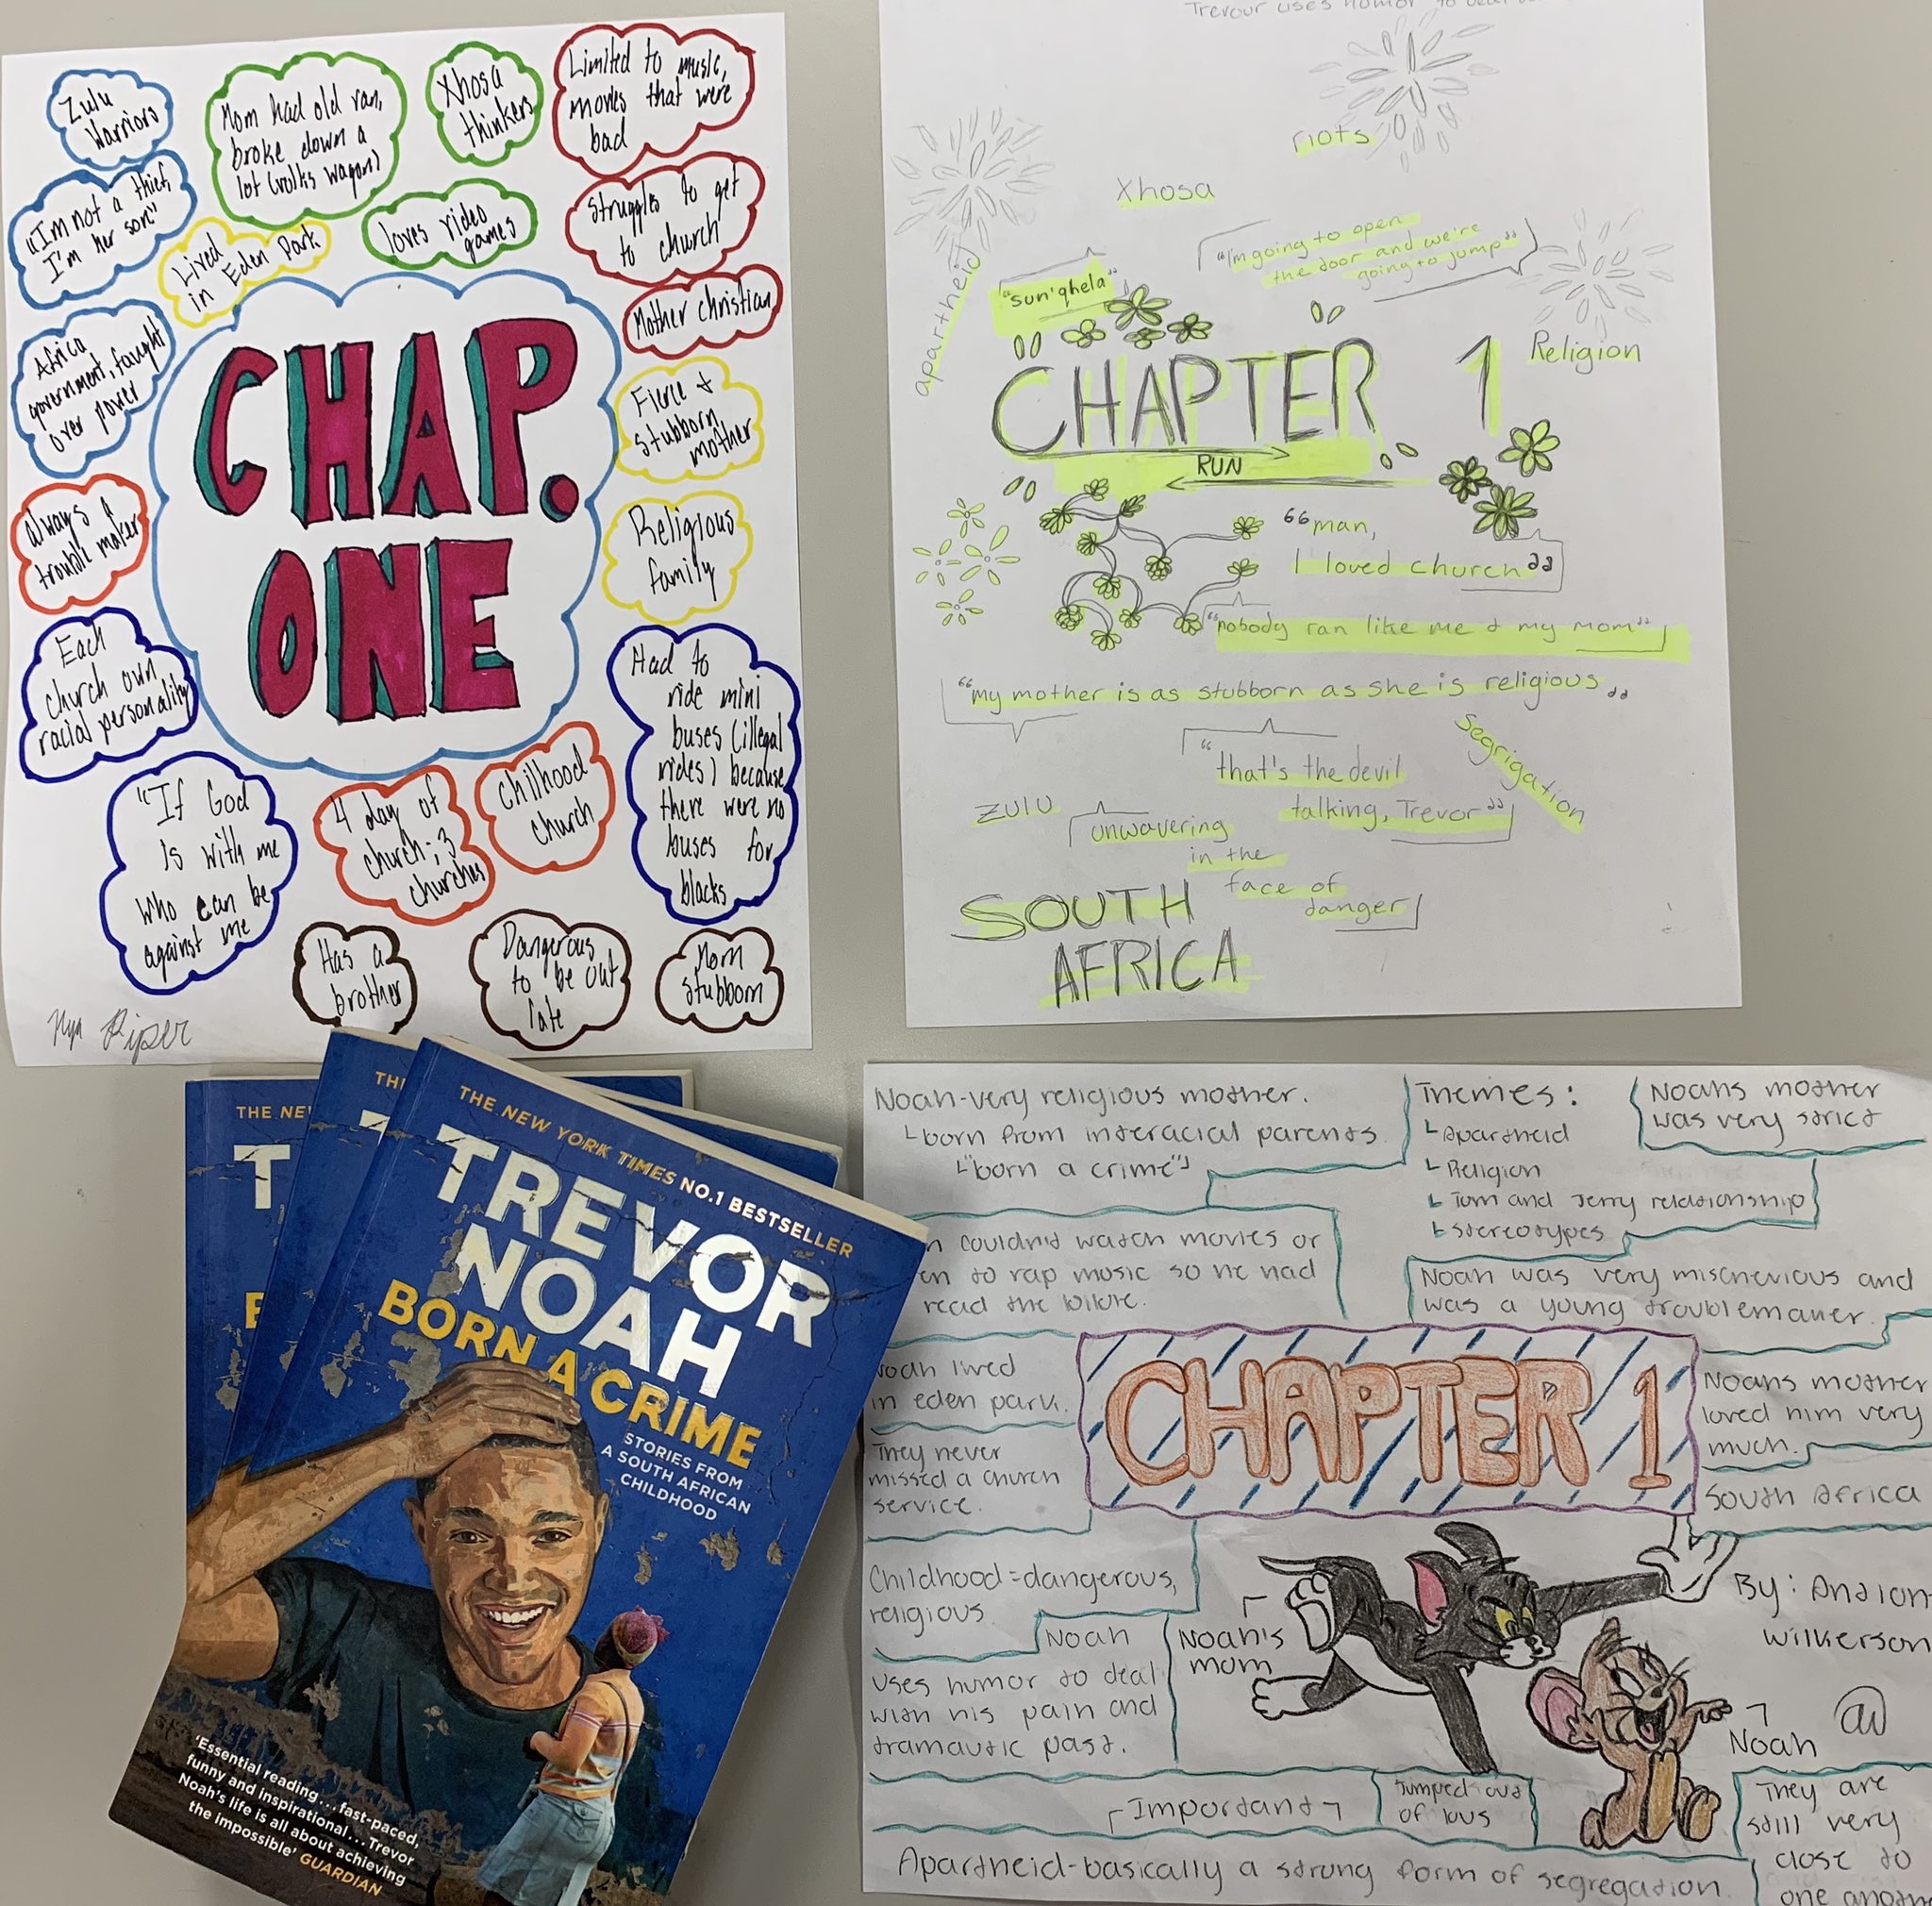 Zulu
Warriors
Mom had old van,
broke down a
lot (volks wagon)
Xhosa
thinkers
Limited to music,
movies that were
bad
"I'm not a thief,
I'm her son."
Lived
in Eden Park
loves video
games
Struggles to get
to church
Mother christian
Africa
government, fought
over power
CHAP.
ONE
Fierce &
stubborn
mother
Always a
trouble maker
Religious
family
Each
church own
racial personality
Had to
ride mini
buses (illegal
rides) because
there were no
buses for
blacks
"If God
Is with me
Who can be
against me
4 day of
church; 3
churches
chilhood
church
Has a
brother
Dangerous
to be out
late
Mom
stubborn
Piper
Trevour uses humor to deal
riots
Xhosa
apartheid
"sun'qhela"
"I'm going to open
the door and we're
going to jump"
CHAPTER 1
RUN
Religion
"man,
I loved church"
"nobody ran like me & my mom"
"my mother is as stubborn as she is religious"
"that's the devil
talking, Trevor"
Segrigation
ZULU
unwavering
in the
face of
danger
SOUTH
AFRICA
THE NE
T
THE
T
THE NEW YORK TIMES NO.1 BESTSELLER
TREVOR
NOAH
BORN A CRIME
STORIES FROM
A SOUTH AFRICAN
CHILDHOOD
'Essential reading... fast-paced,
funny and inspirational... Trevor
Noah's life is all about achieving
the impossible' GUARDIAN
Noah-very religious mother.
born from interacial parents.
"born a crime"
Themes:
Apartheid
Religion
Tom and Jerry relationship
stereotypes
Noahs mother
was very strict
couldn't watch movies or
to rap music so he had
read the bible.
Noah was very mischevious and
was a young troublemaker.
Noah lived
in eden park.
CHAPTER 1
Noahs mother
loved him very
much.
They never
missed a church
service.
South Africa
Childhood=dangerous,
religious
By: Antion
Wilkerson
Noah
uses humor to deal
with his pain and
tramautic past.
Noah's
mom
Noah
aw
Important
Jumped out
of bus
They are
still very
close to
one another
Apartheid-basically a strong form of segregation